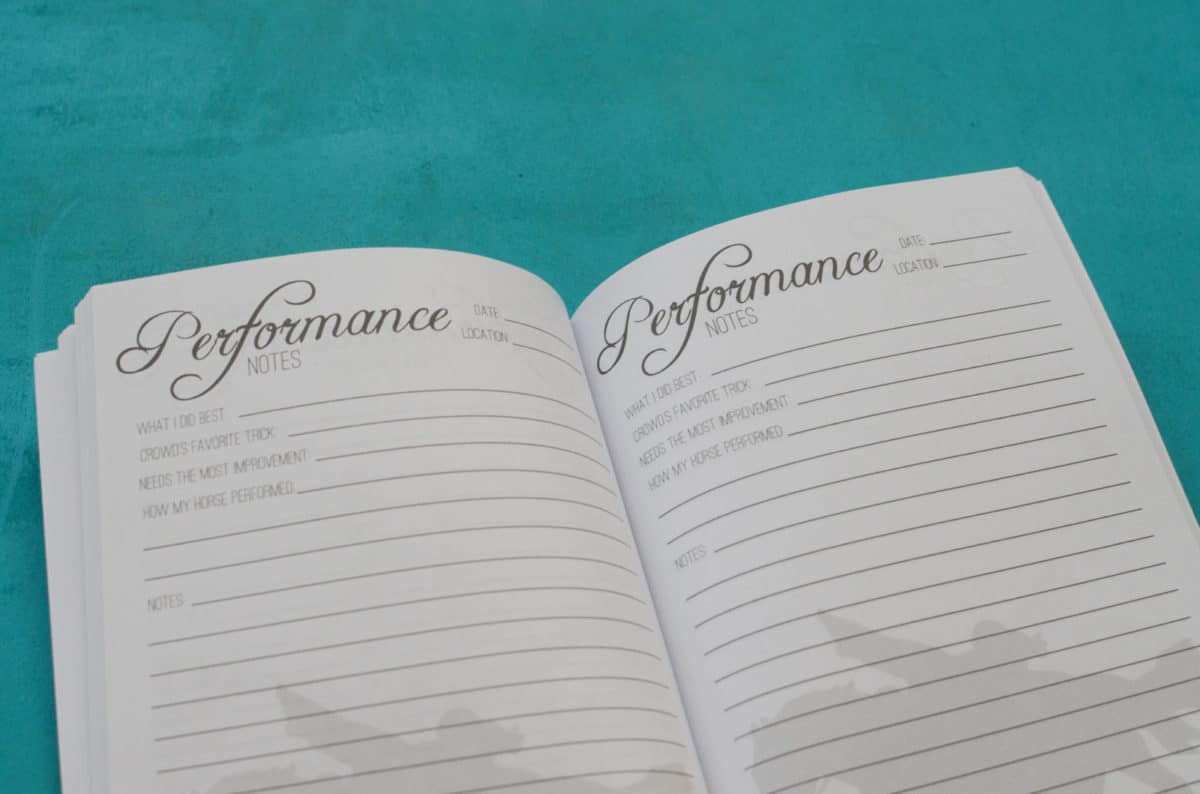 Performance
NOTES
DATE:
LOCATION:
WHAT I DID BEST:
CROWD'S FAVORITE TRICK:
NEEDS THE MOST IMPROVEMENT:
HOW MY HORSE PERFORMED:
NOTES:
Performance
NOTES
DATE:
LOCATION:
WHAT I DID BEST:
CROWD'S FAVORITE TRICK:
NEEDS THE MOST IMPROVEMENT:
HOW MY HORSE PERFORMED:
NOTES: